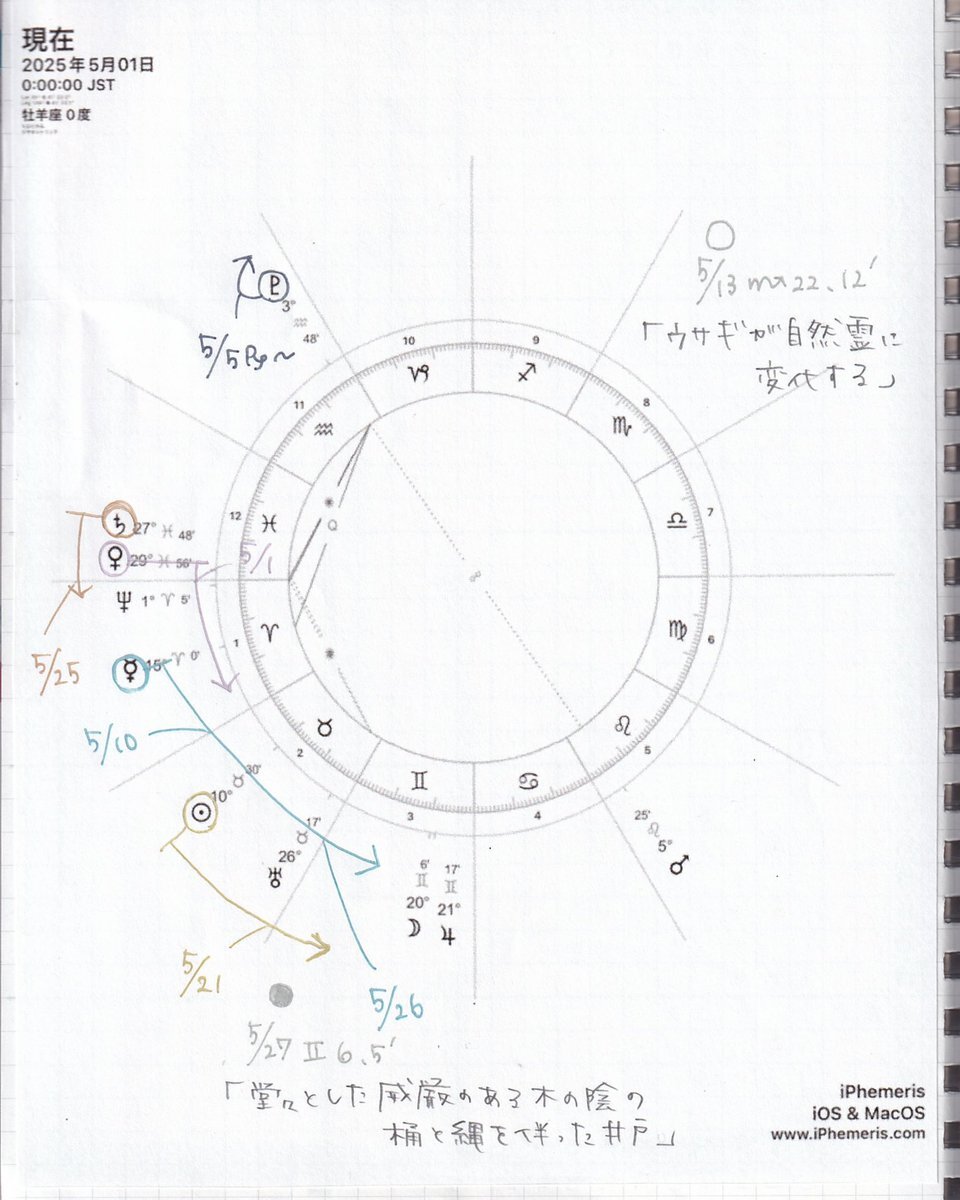 現在
2025年5月01日
0:00:00 JST
牡羊座 0度
○
5/13 ♏22、12'
「ウサギが自然霊に
変化する」
♇
3°
♒
48'
5/5 R~
10
9
♑
♐
11
8
♒
♏
12
7
♓
♎
♄ 27° ♓ 48'
♀ 29° ♓ 56'
5/1
♆ 1° ♈ 5'
♈
♍
1
6
5/25
☿ 15° ♈ 0'
♉
♌
5/10
2
5
♊
♋
3
4
☉ 10° ♉ 30'
♅ 26° ♉ 17'
☽ 20° ♊ 6'
♃ 21° ♊ 17'
25'
♌
5°
♂
5/21
5/26
5/27 Ⅱ 6、5'
「堂々とした威厳のある木の陰の
桶と縄を伴った井戸」
iPhemeris
iOS & MacOS
www.iPhemeris.com